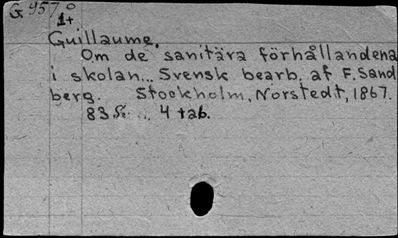 G 957 0
1+
Guillaume.
Om de sanitära förhållandena
i skolan... Svensk bearb. af F. Sand
berg. Stockholm, Norstedt, 1867.
83 S. ... 4 tab.